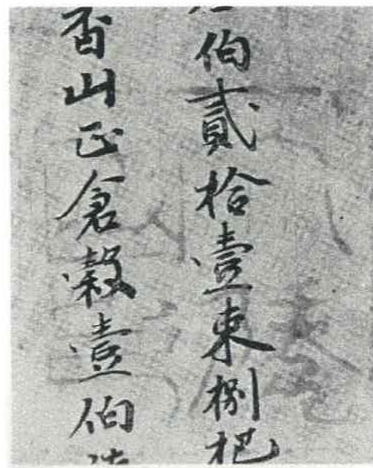 伯貳拾壹束捌把
香山正倉穀壹伯